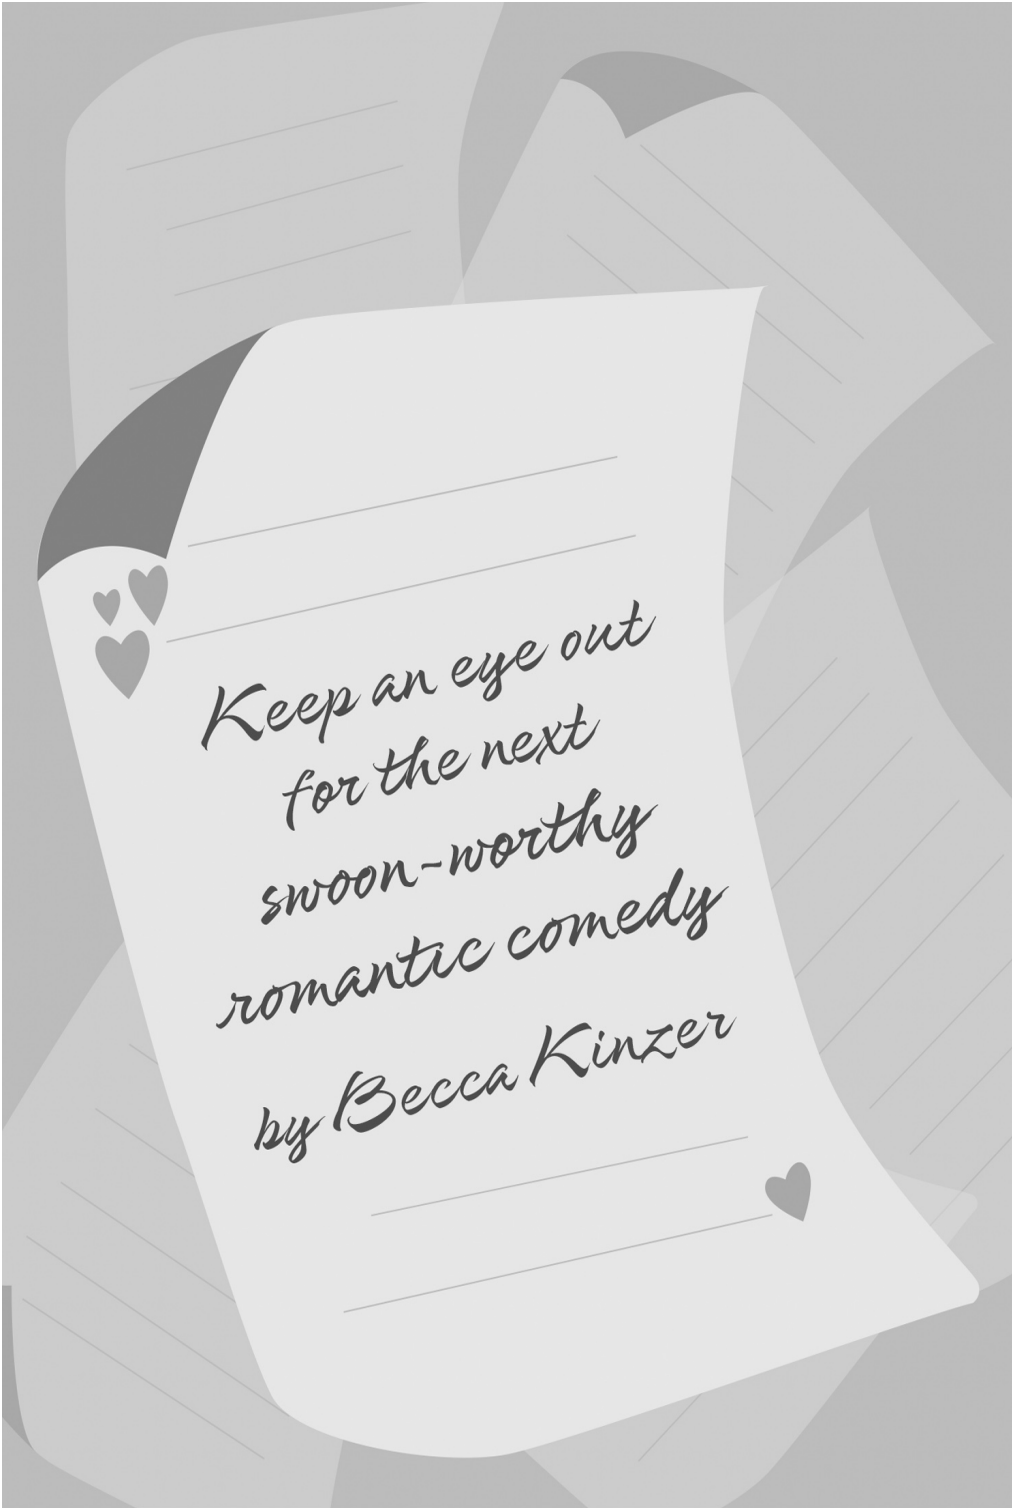 Keep an eye out
for the next
swoon-worthy
romantic comedy
by Becca Kinzer